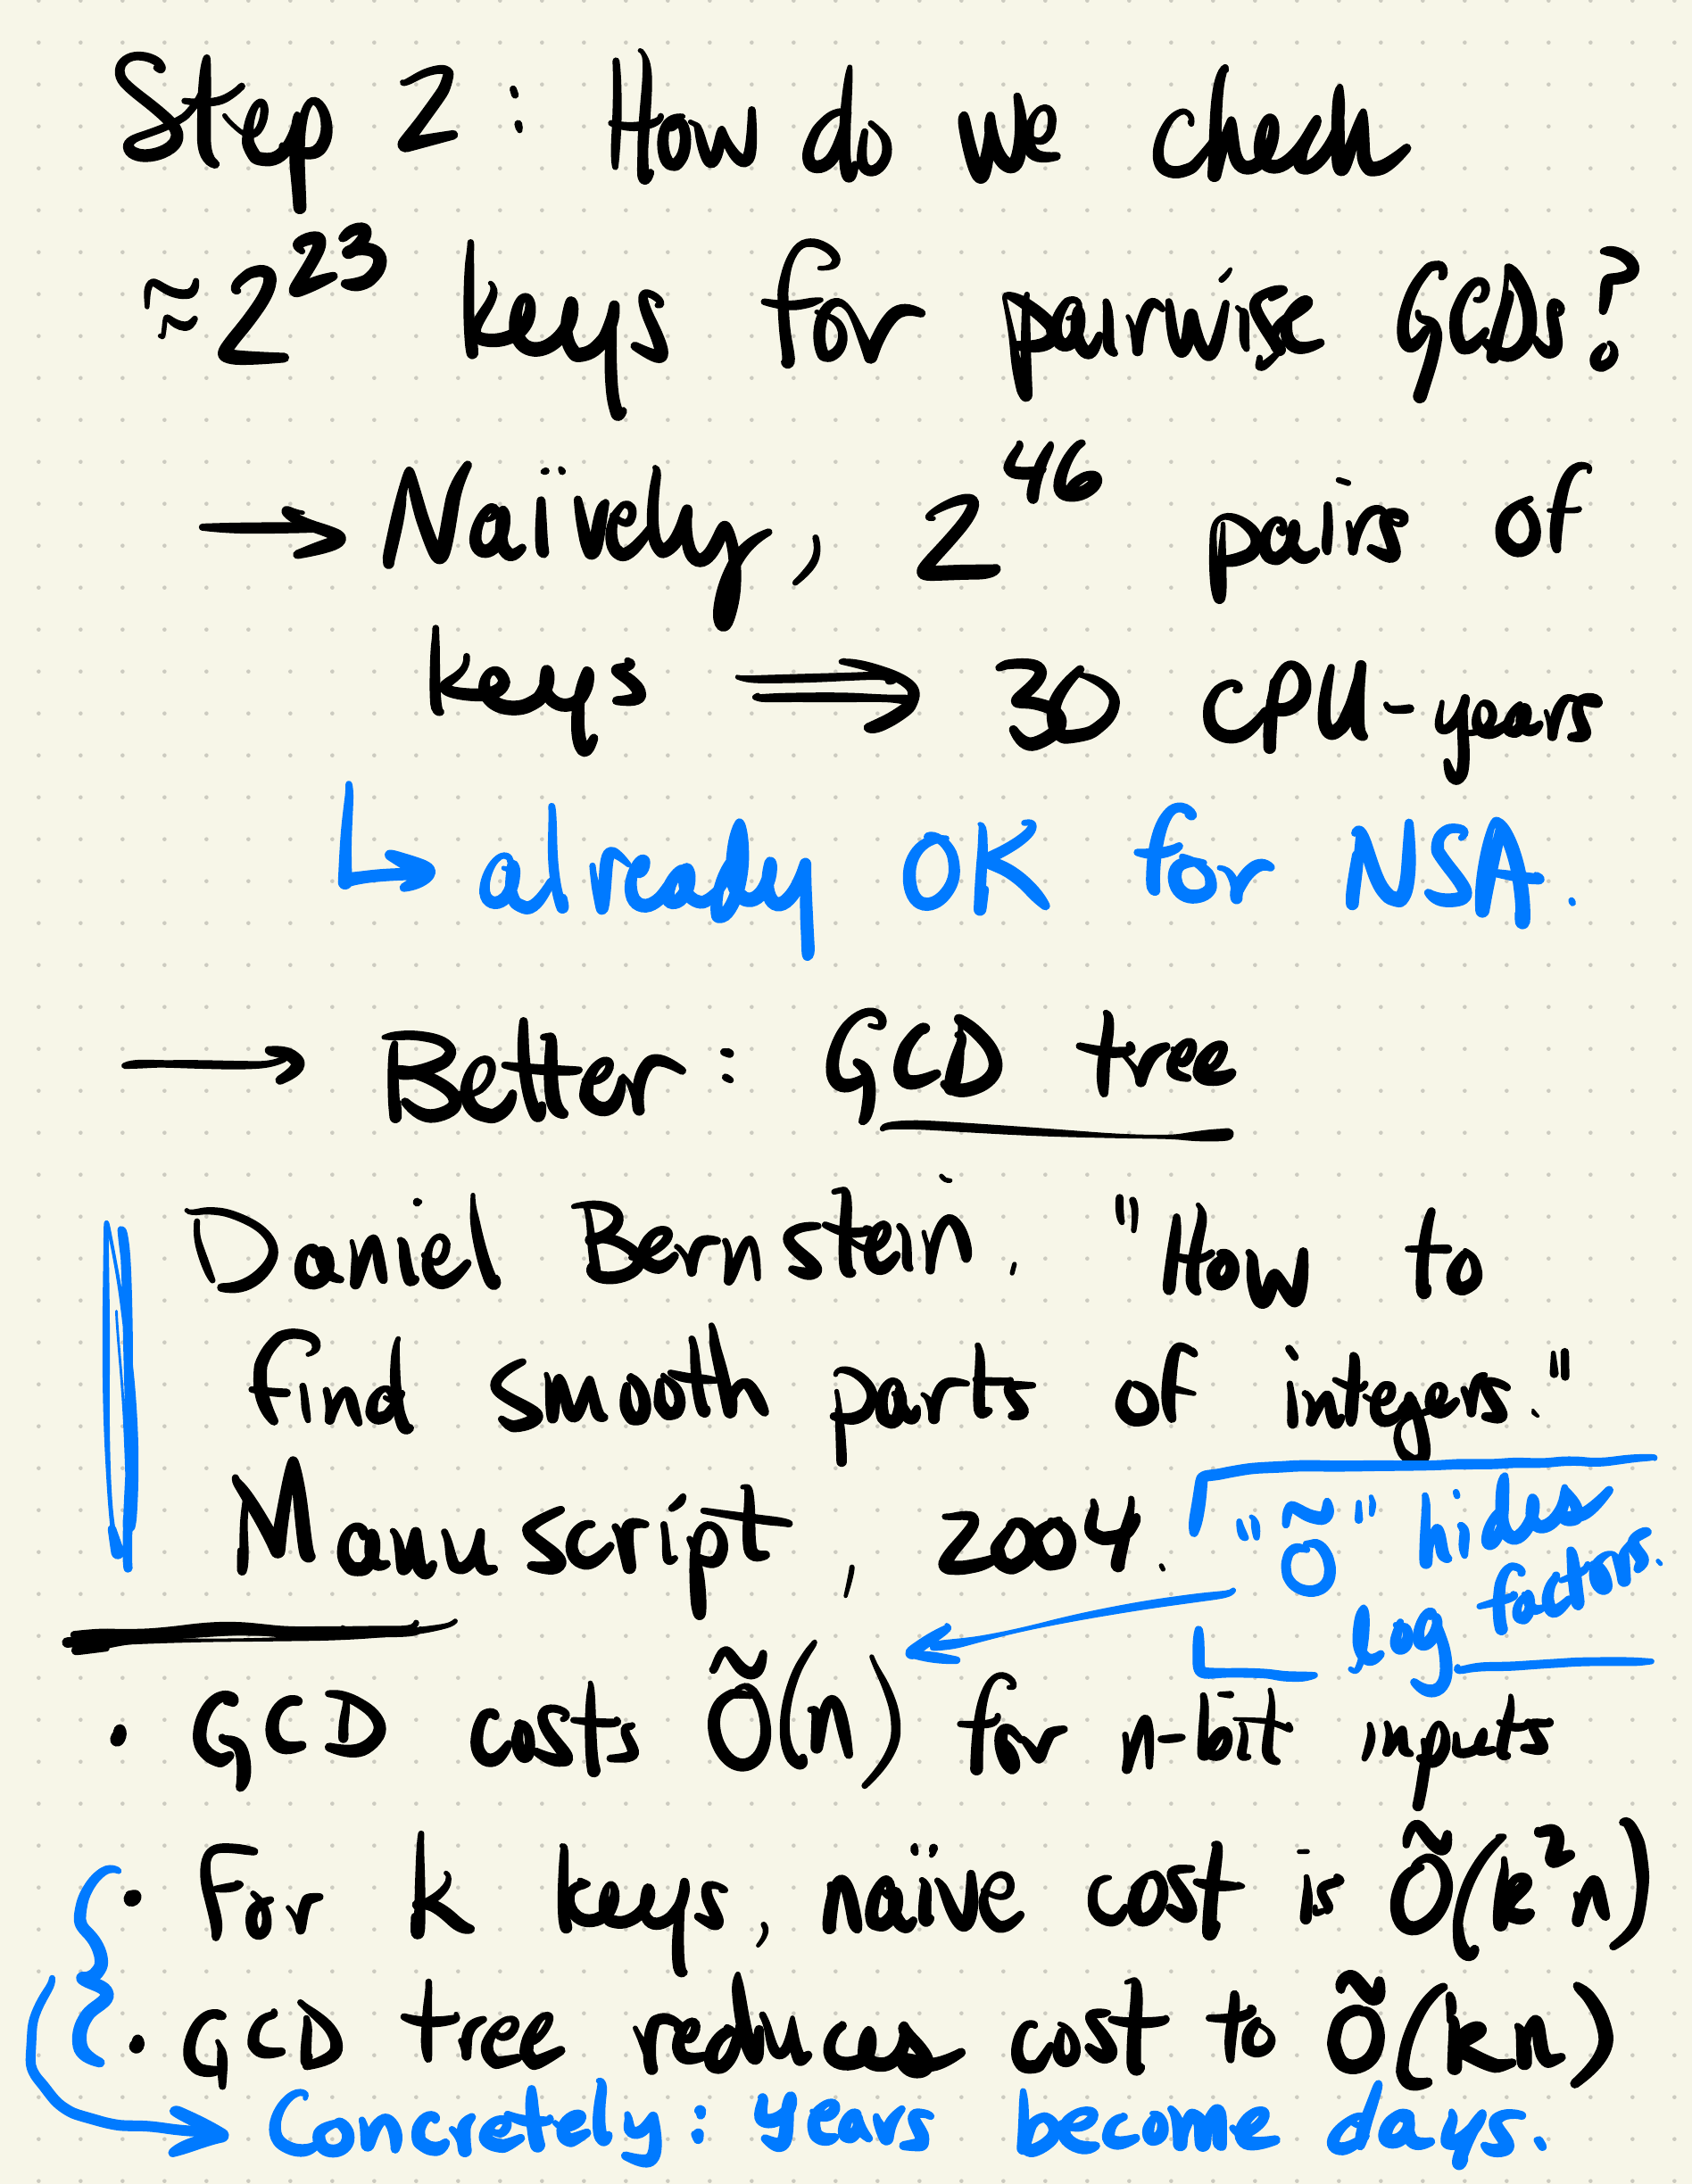 Step 2: How do we check
≈2^23 keys for pairwise GCDs?
→ Naïvely, 2^46 pairs of
keys ⟹ 30 CPU-years
↳ already OK for NSA.
→ Better: GCD tree
Daniel Bernstein. "How to
find smooth parts of integers."
Manuscript, 2004.
"Õ" hides
log factors.
· GCD costs Õ(n) for n-bit inputs
· For k keys, naïve cost is Õ(k²n)
· GCD tree reduces cost to Õ(kn)
→ Concretely: years become days.